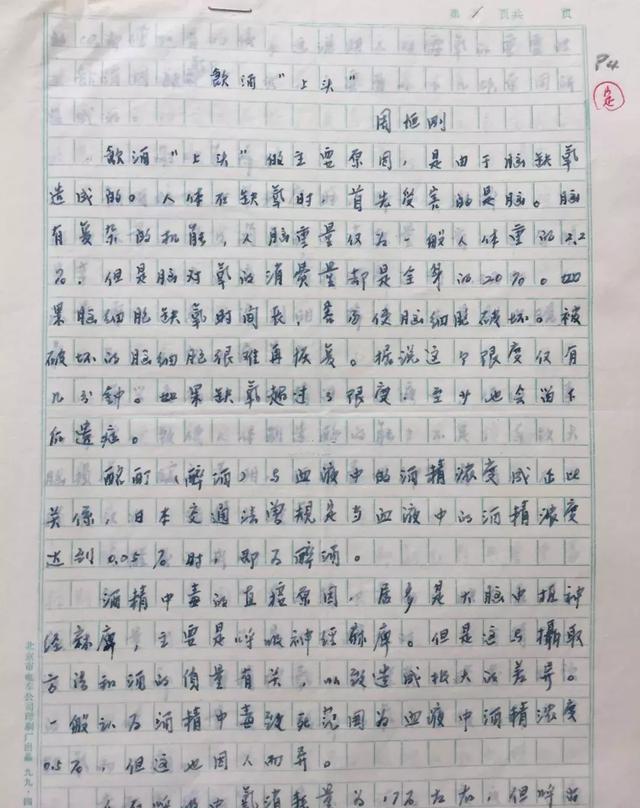 第 1 页共 页
P4
定
飲酒“上头”
周恒刚
飲酒“上头”的主要原因，是由于脑缺氧
造成的。人体在缺氧时，首先受害的是脑。脑
有复杂的机能，人脑重量仅为一般人体重的2.2
%，但是脑对氧的消费量却是全身的20%。如
果脑细胞缺氧时间长，会使脑细胞破坏。被
破坏的脑细胞很难再恢复。据说这个限度仅有
几分钟。如果缺氧超过了限度，至少也会留下
后遗症。
酩酊（醉酒）与血液中的酒精浓度成正比
关係，日本交通法曾规定当血液中的酒精浓度
达到0.05%时，即为醉酒。
酒精中毒的直接原因，居多是大脑中枢神
经麻痺，主要是呼吸神经麻痺。但是这与攝取
方法和酒的质量有关，以致造成极大的差异。
一般认为酒精中毒致死范围为血液中酒精浓度
0.5%，但这也因人而异。
氧消耗量为 左右，但呼出
北京市电车公司印刷厂出品 九九·四